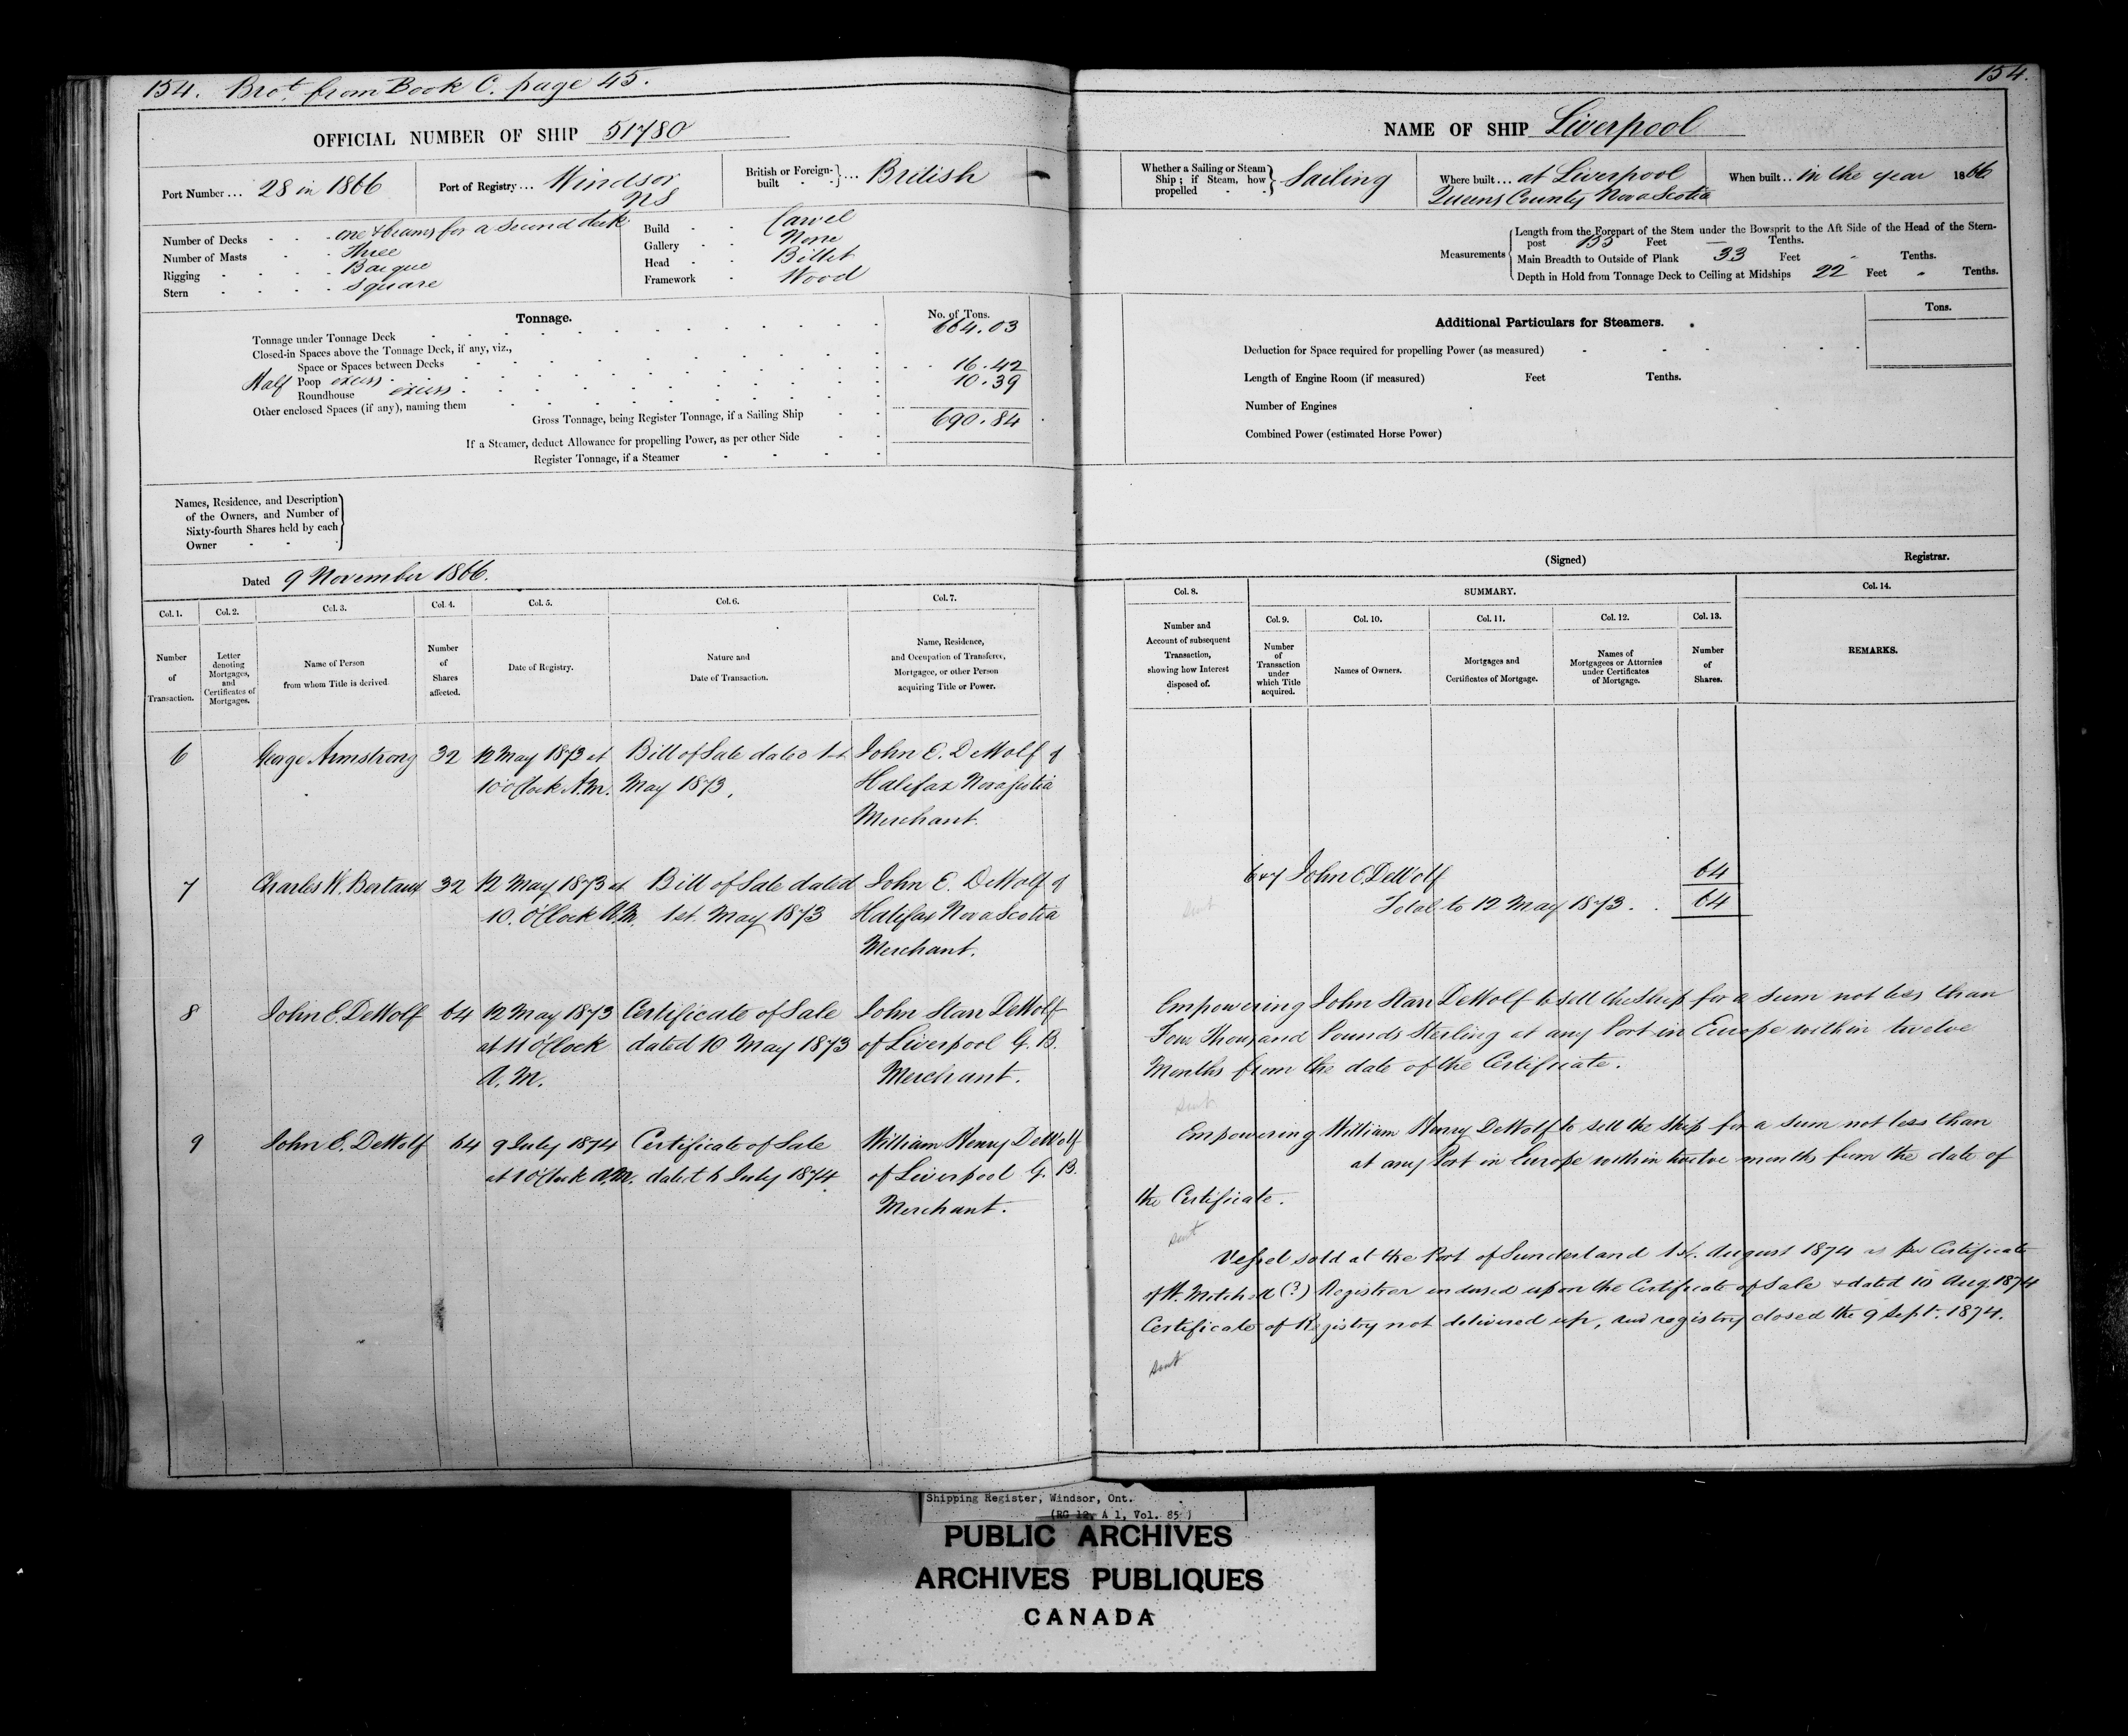 154. Brot. from Book C. page 45.
154.
OFFICIAL NUMBER OF SHIP 51780
NAME OF SHIP Liverpool
Port Number... 28 in 1866
Port of Registry... Windsor NS
British or Foreign-built } ... British
Whether a Sailing or Steam Ship; if Steam, how propelled } Sailing
Where built... at Liverpool
Queens County Nova Scotia
When built... in the year 1866
Number of Decks - - - one & beams for a second deck
Number of Masts - - Three
Rigging - - - - Barque
Stern - - - - Square
Build - - Carvel
Gallery - - None
Head - - Billet
Framework - Wood
Measurements
Length from the Forepart of the Stem under the Bowsprit to the Aft Side of the Head of the Stern-
post 135 Feet — Tenths.
Main Breadth to Outside of Plank 33 Feet " Tenths.
Depth in Hold from Tonnage Deck to Ceiling at Midships 22 Feet " Tenths.
Tonnage.
No. of Tons.
Tonnage under Tonnage Deck 664.03
Closed-in Spaces above the Tonnage Deck, if any, viz.,
Space or Spaces between Decks
Half Poop excess 16.42
Roundhouse excess 10.39
Other enclosed Spaces (if any), naming them
Gross Tonnage, being Register Tonnage, if a Sailing Ship 690.84
If a Steamer, deduct Allowance for propelling Power, as per other Side
Register Tonnage, if a Steamer
Additional Particulars for Steamers.
Tons.
Deduction for Space required for propelling Power (as measured)
Length of Engine Room (if measured) Feet Tenths.
Number of Engines
Combined Power (estimated Horse Power)
Names, Residence, and Description
of the Owners, and Number of
Sixty-fourth Shares held by each
Owner
Dated 9 November 1866.
(Signed) Registrar.
Col. 1.
Number
of
Transaction.
Col. 2.
Letter
denoting
Mortgages,
and
Certificates of
Mortgages.
Col. 3.
Name of Person
from whom Title is derived.
Col. 4.
Number
of
Shares
affected.
Col. 5.
Date of Registry.
Col. 6.
Nature and
Date of Transaction.
Col. 7.
Name, Residence,
and Occupation of Transferee,
Mortgagee, or other Person
acquiring Title or Power.
Col. 8.
Number and
Account of subsequent
Transaction,
showing how Interest
disposed of.
SUMMARY.
Col. 9.
Number
of
Transaction
under
which Title
acquired.
Col. 10.
Names of Owners.
Col. 11.
Mortgages and
Certificates of Mortgage.
Col. 12.
Names of
Mortgagees or Attornies
under Certificates
of Mortgage.
Col. 13.
Number
of
Shares.
Col. 14.
REMARKS.
6 George Armstrong 32 12 May 1873 at Bill of Sale dated 1st John E. DeWolf of
10 o'Clock A.M. May 1873. Halifax Nova Scotia
Merchant.
7 Charles W. Bertaux 32 12 May 1873 at Bill of Sale dated John E. DeWolf of
10. O'Clock A.M. 1st. May 1873 Halifax Nova Scotia
Merchant.
6+7 John E. DeWolf 64
Total to 12 May 1873. . 64
sent
8 John E. DeWolf 64 12 May 1873 Certificate of Sale John Starr DeWolf
at 11 o'Clock dated 10 May 1873 of Liverpool G. B.
A. M. Merchant.
Empowering John Starr DeWolf to sell the Ship for a sum not less than
Four Thousand Pounds Sterling at any Port in Europe within twelve
Months from the date of the Certificate.
sent
9 John E. DeWolf 64 9 July 1874 Certificate of Sale William Henry DeWolf
at 10 Clock A.M. dated 6 July 1874. of Liverpool G. B.
Merchant.
Empowering William Henry DeWolf to sell the Ship for a sum not less than
at any Port in Europe within twelve months from the date of
the Certificate.
sent
Vessel sold at the Port of Sunderland 1st. August 1874 as per Certificate
of W. Mitchell (?) Registrar endorsed upon the Certificate of Sale & dated 10 Aug. 1874
Certificate of Registry not delivered up, and registry closed the 9 Sept. 1874.
sent
Shipping Register, Windsor, Ont.
(RG 12, A 1, Vol. 85)
PUBLIC ARCHIVES
ARCHIVES PUBLIQUES
CANADA